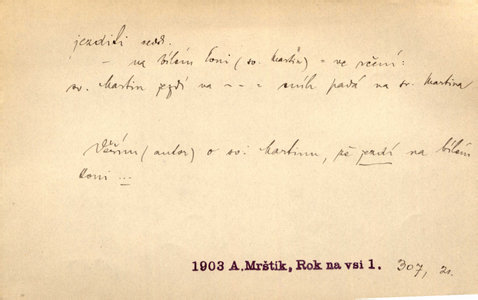 jezditi ned.
– na bílém koni (sv. Martin) = ve rčení:
sv. Martin jezdí na – – = sníh padá na sv. Martina
Věřím (autor) o sv. Martinu, že jezdí na bílém
koni ...
1903 A. Mrštík, Rok na vsi 1. 307,